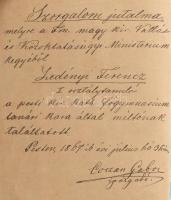 Szorgalom jutalma
melyre a Kir. magy. Vallás
és Közoktatásügyi Ministerium
kegyéből
Zedényi Ferencz
I osztálytanuló
a pesti kir. kath. főgymnasium
tanári kara által méltónak
találtatott
Pesten, 1867ik évi július hó 30án
Corzan Gábor
igazgató